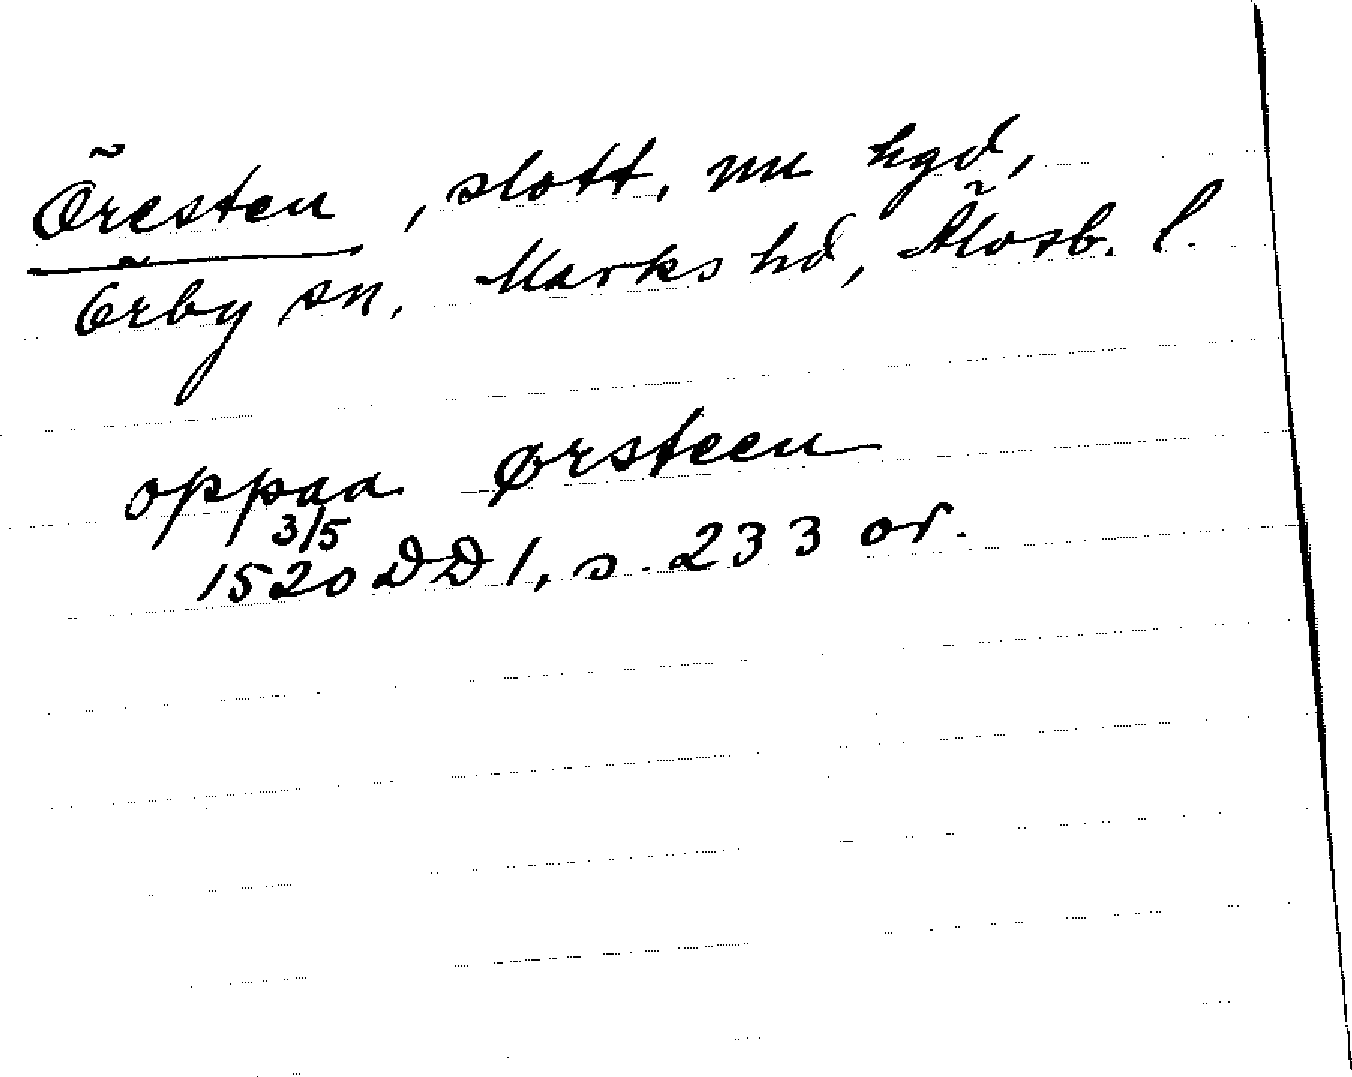 Öresten, slott, nu hgd,
Örby sn, Marks hd, Älvsb. l.
oppaa Ørsteen
3/5
1520 DD 1, s. 233 or.